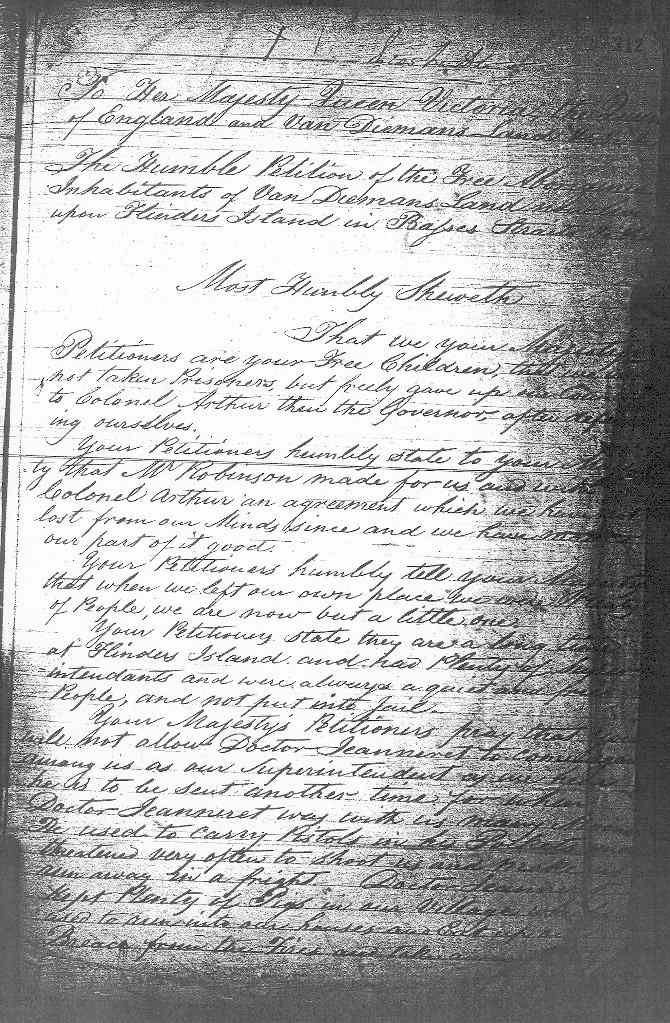 312
To Her Majesty Queen Victoria, the Queen
of England and Van Diemans Land
The Humble Petition of the Free
Inhabitants of Van Diemans Land
upon Flinders Island in Basses Straits
Most Humbly Sheweth
That we your Majesty's
Petitioners are your Free Children, that we
not taken Prisoners, but freely gave up our
to Colonel Arthur then the Governor, after
ing ourselves.
Your Petitioners humbly state to your
ty that Mr Robinson made for us and with
Colonel Arthur an agreement which we have
lost from our Minds since and we have made
our part of it good.
Your Petitioners humbly tell your Majesty
that when we left our own place we were Plenty
of People, we are now but a little one.
Your Petitioners state they are a long time
at Flinders Island and had Plenty of
intendants and were always a quiet and free
People, and not put into Jail.
Your Majesty's Petitioners pray that you
will not allow Doctor Jeanneret to come again
among us as our Superintendent as we
he is to be sent another time, for when
Doctor Jeanneret was with us many
He used to carry Pistols in his Pockets
threatened very often to shoot us and make us
run away in a fright. Doctor Jeanneret
kept Plenty of Pigs in our Village which
used to run into our houses and eat up
Bread from the Fires and take